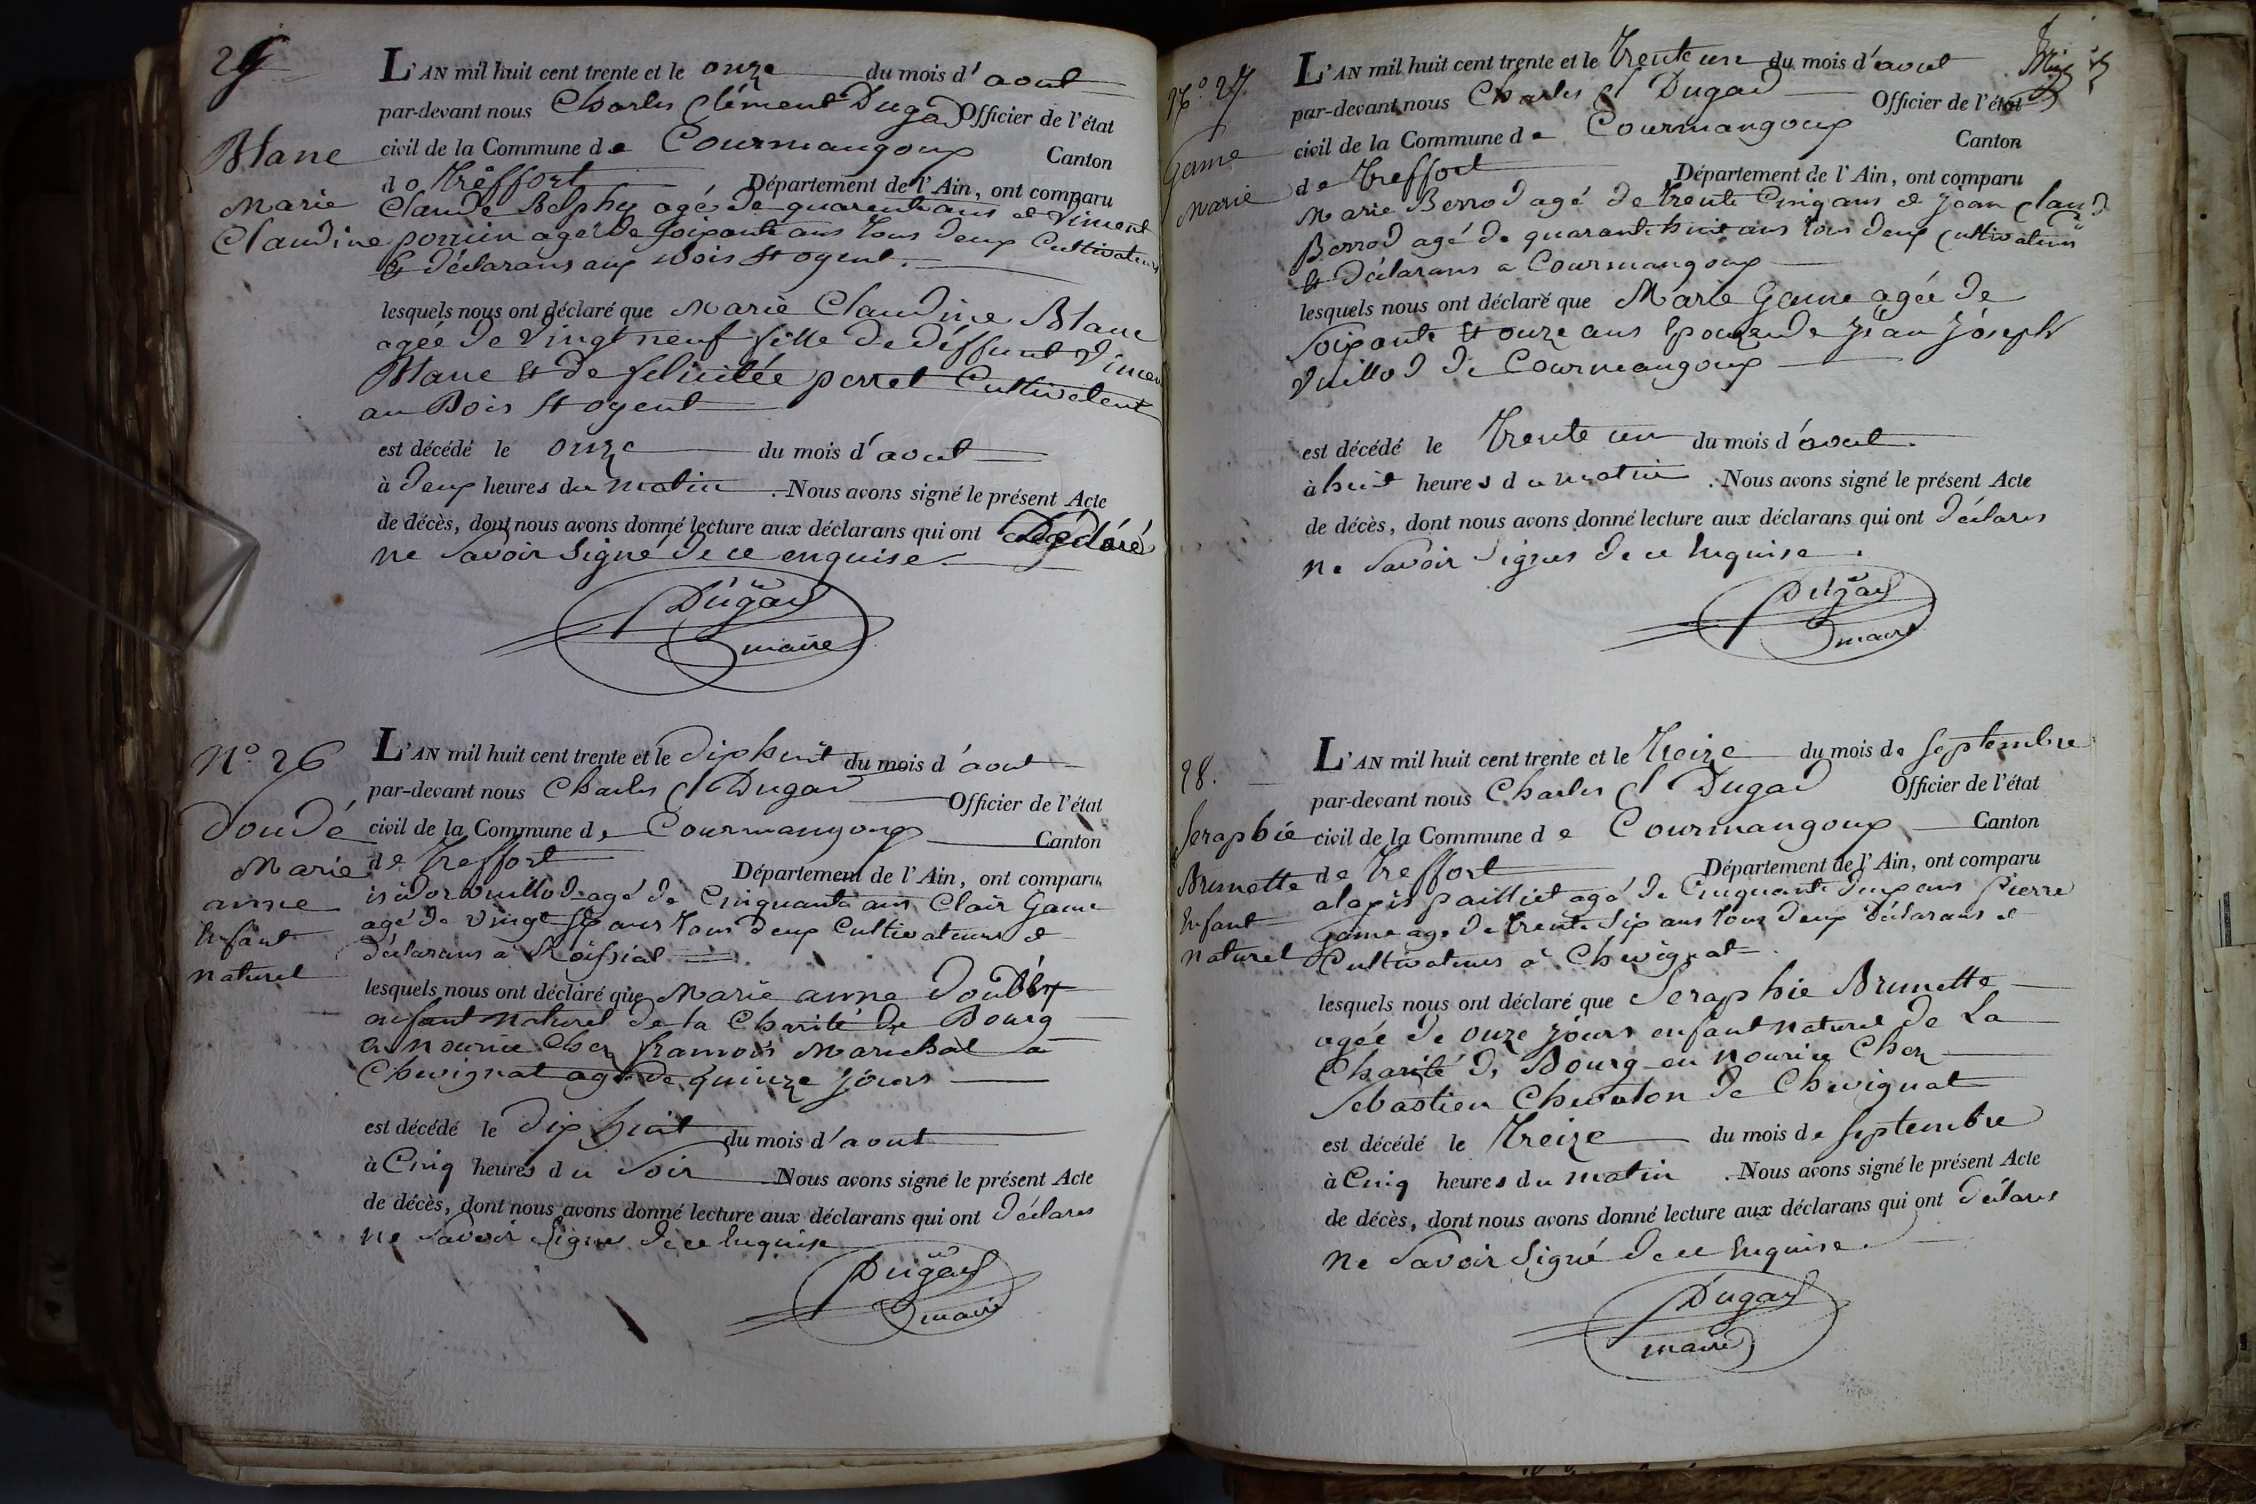 25
Blanc
Marie
Claudine
L'AN mil huit cent trente et le onze du mois d'aout
par-devant nous Charles Clément Dugad Officier de l'état
civil de la Commune de Courmangoux Canton
de Treffort Département de l'Ain, ont comparu
Claude Belphy agé de quarente ans et Viment
ponin agé de soixante ans tous deux Cultivateurs
et déclarans aux Bois St oyent.
lesquels nous ont déclaré que Marie Claudine Blanc
agée de Vingt neuf fille de déffunt Vincen
Blanc et de felicitée perret Cultivateur
au Bois St oyent
est décédé le onze du mois d'aout
à deux heures du matin. Nous avons signé le présent Acte
de décès, dont nous avons donné lecture aux déclarans qui ont Déclaré
ne Savoir Signé de ce enquise.
Dugad
maire
N° 26
doudé
Marie
anne
Enfant
naturel
L'AN mil huit cent trente et le dixhuit du mois d'aout
par-devant nous Charles Cl Dugad Officier de l'état
civil de la Commune de Courmangoux Canton
de Treffort Département de l'Ain, ont comparu
isidor vuillod agé de Cinquante ans Clair Game
agé de vingt ans tous deux Cultivateurs et
déclarans à Roissiat
lesquels nous ont déclaré que Marie anne
enfant naturel de la Charité de Bourg
en nourice chez francois Marechal a
Chevignat agé de quinze jours
est décédé le dix huit du mois d'aout
à Cinq heures du Soir Nous avons signé le présent Acte
de décès, dont nous avons donné lecture aux déclarans qui ont déclarés
ne Savoir Signer de ce Enquise
Dugad
maire
N° 27
Game
Marie
L'AN mil huit cent trente et le Trente un du mois d'aout
par-devant nous Charles Cl Dugad Officier de l'état
civil de la Commune de Courmangoux Canton
de Treffort Département de l'Ain, ont comparu
Marie Berrod agé de trente Cinq ans et jean Claud
Berrod agé de quarante huit ans tous deux Cultivateurs
et déclarans a Courmangoux
lesquels nous ont déclaré que Marie Game agée de
Soixante et onze ans Epouze de Jean Joseph
Vuillod de Courmangoux
est décédé le Trente un du mois d'aout.
à huit heures du matin. Nous avons signé le présent Acte
de décès, dont nous avons donné lecture aux déclarans qui ont déclarés
ne Savoir Signer de ce Enquise.
Dugad
maire
28.
Seraphie
Brunette
Enfant
naturel
L'AN mil huit cent trente et le Treize du mois de Septembre
par-devant nous Charles Cl Dugad Officier de l'état
civil de la Commune de Courmangoux Canton
de Treffort Département de l'Ain, ont comparu
alexis pailliet agé de Cinquante deux ans Pierre
Game agé de trente Six ans tous deux déclarans et
Cultivateurs à Chevignat.
lesquels nous ont déclaré que Seraphie Brunette
agée de onze jours enfant naturel de La
Charité de Bourg en Nourice Chez
Sebastien Chevaton de Chevignat
est décédé le Treize du mois de Septembre
à Cinq heures du matin. Nous avons signé le présent Acte
de décès, dont nous avons donné lecture aux déclarans qui ont déclarés
ne Savoir Signé de ce Enquise.
Dugad
maire